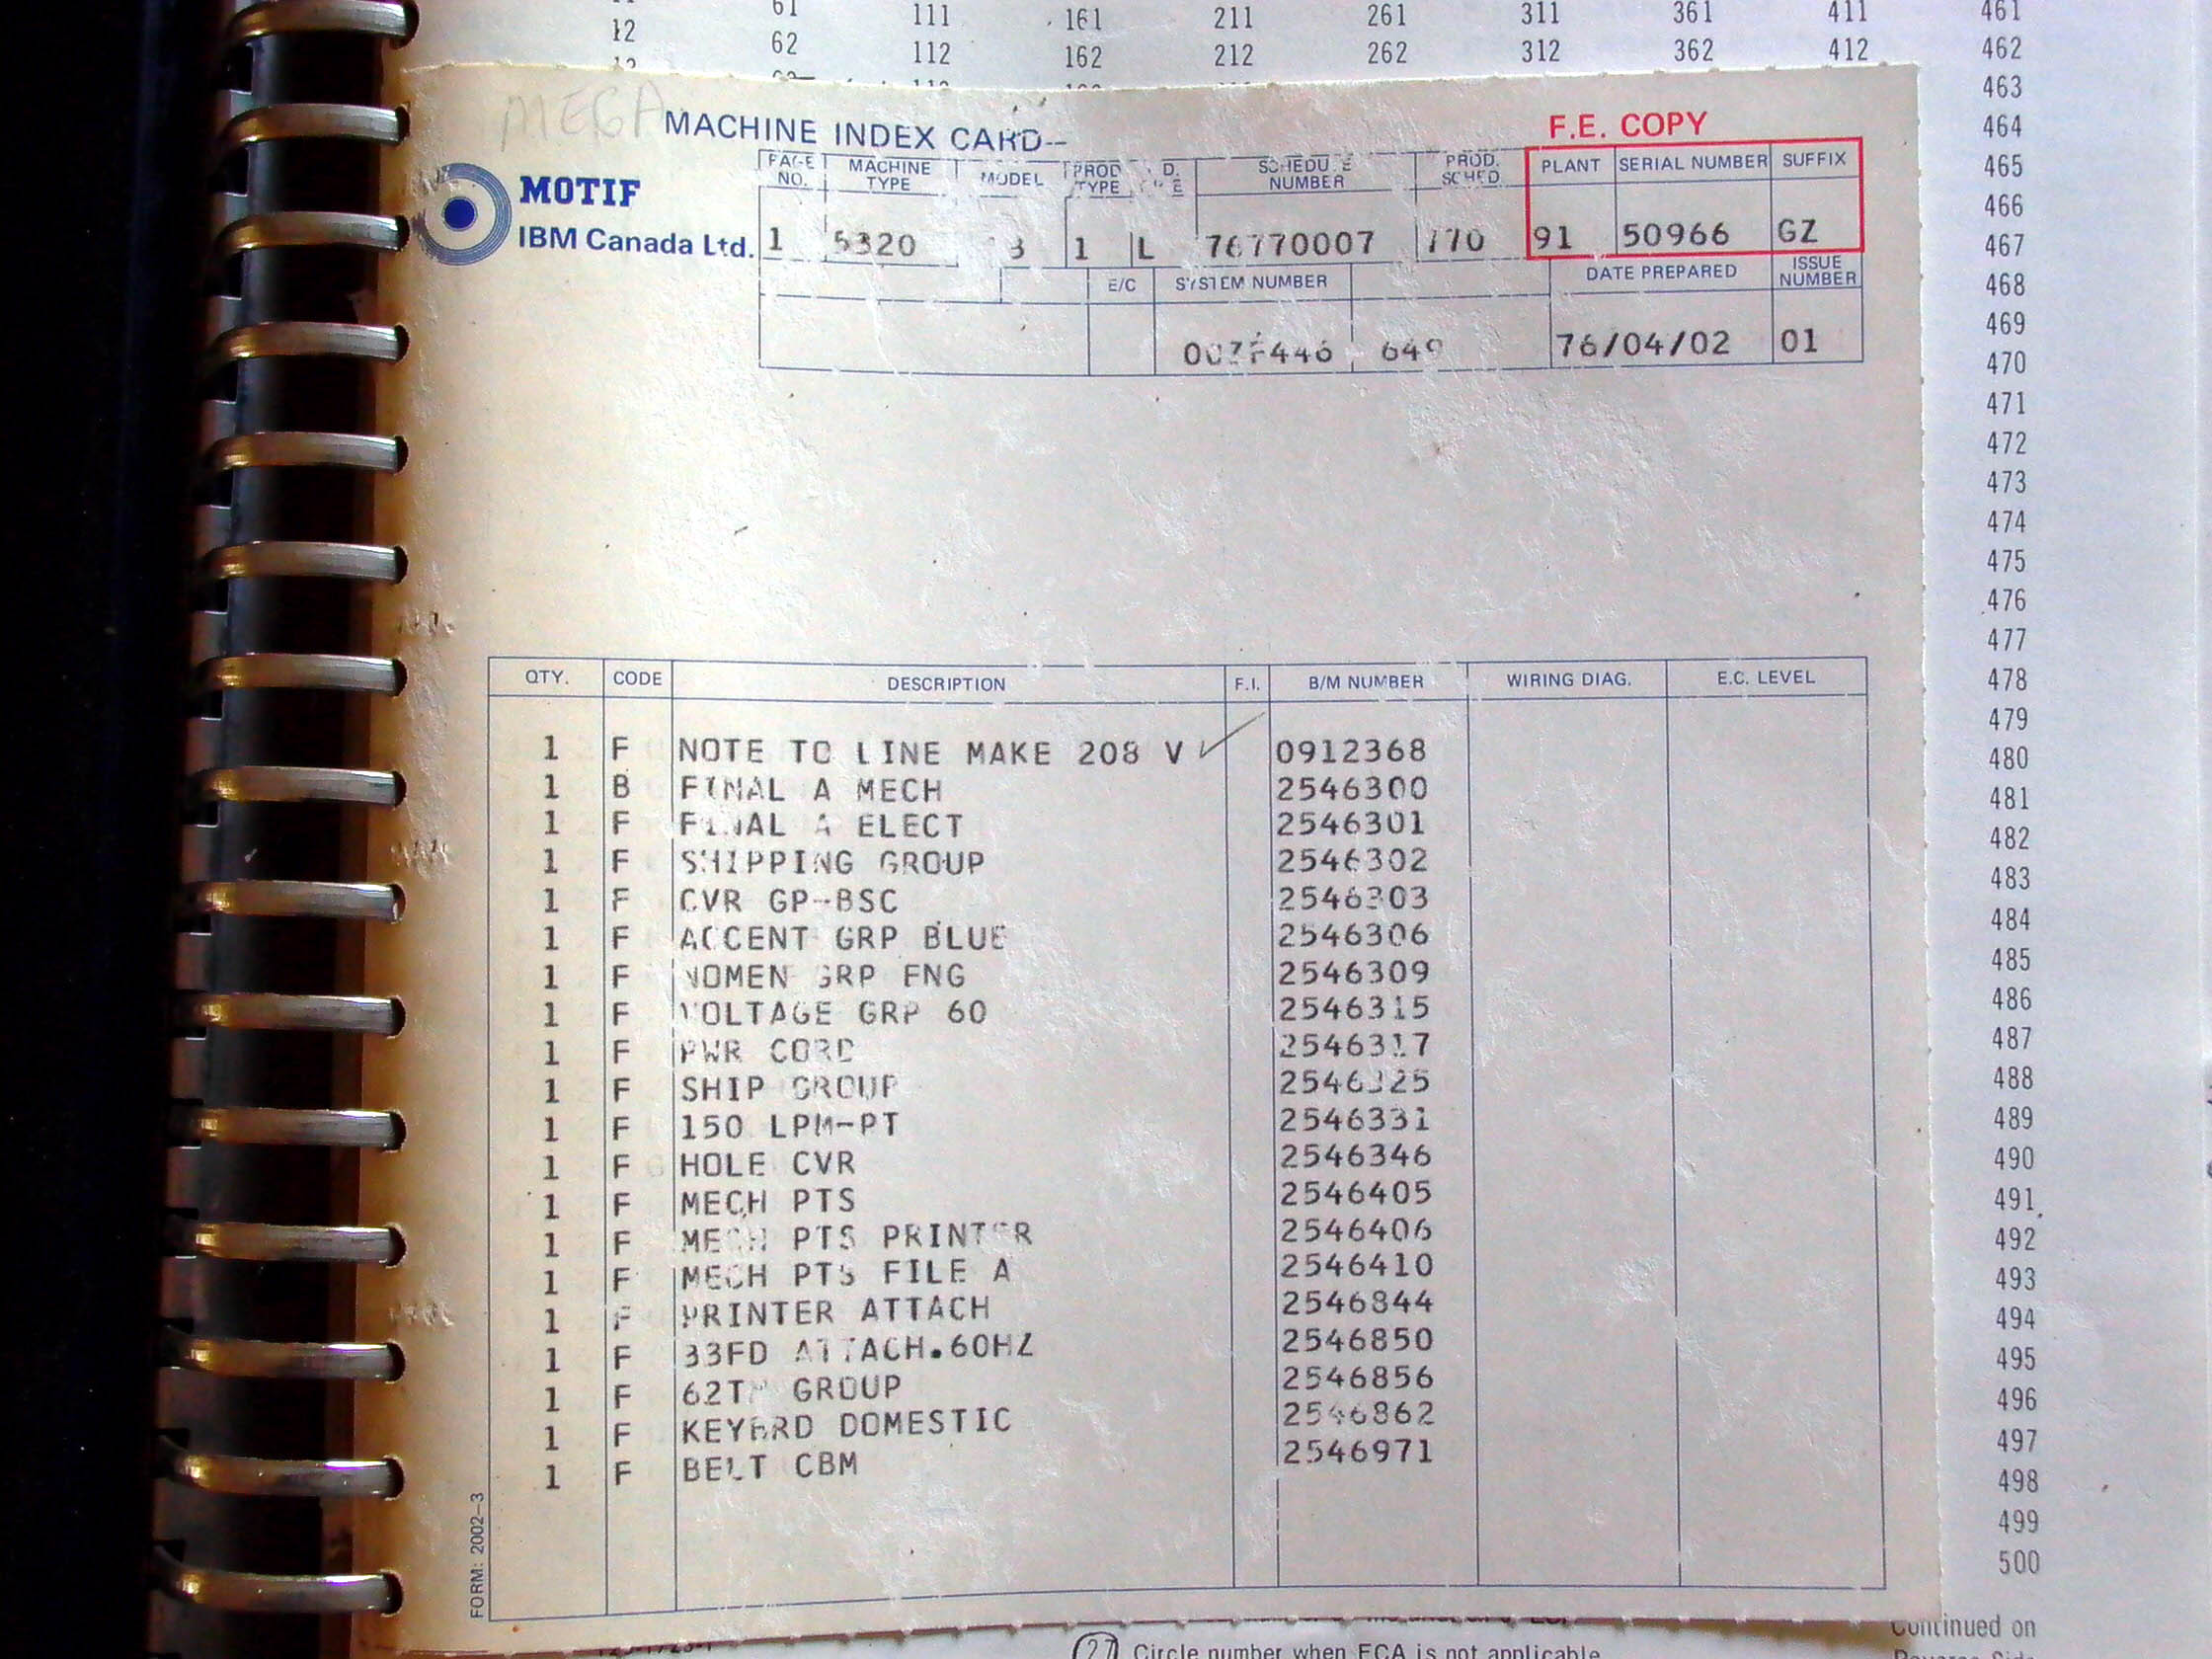 61 111 161 211 261 311 361 411 461
12 62 112 162 212 262 312 362 412 462
463
MEGA MACHINE INDEX CARD-- F.E. COPY
464
PAGE NO. MACHINE TYPE MODEL PROD TYPE SCHEDULE NUMBER PROD. SCHED. PLANT SERIAL NUMBER SUFFIX
465
MOTIF
466
IBM Canada Ltd. 1 5320 3 1 L 76770007 770 91 50966 GZ
467
E/C SYSTEM NUMBER DATE PREPARED ISSUE NUMBER
468
469
76/04/02 01
470
471
472
473
474
475
476
477
QTY. CODE DESCRIPTION F.I. B/M NUMBER WIRING DIAG. E.C. LEVEL
478
479
1 F NOTE TO LINE MAKE 208 V ✓ 0912368
480
1 B FINAL A MECH 2546300
481
1 F FINAL A ELECT 2546301
482
1 F SHIPPING GROUP 2546302
483
1 F CVR GP-BSC 2546303
484
1 F ACCENT GRP BLUE 2546306
485
1 F NOMEN GRP ENG 2546309
486
1 F VOLTAGE GRP 60 2546315
487
1 F PWR CORD 2546317
488
1 F SHIP GROUP 2546325
489
1 F 150 LPM-PT 2546331
490
1 F HOLE CVR 2546346
491
1 F MECH PTS 2546405
492
1 F MECH PTS PRINTER 2546406
493
1 F MECH PTS FILE A 2546410
494
1 F PRINTER ATTACH 2546844
495
1 F 33FD ATTACH.60HZ 2546850
496
1 F GROUP 2546856
497
1 F KEYBRD DOMESTIC 2546862
498
1 F BELT CBM 2546971
499
500
FORM: 2002-3
Continued on
27 Circle number when ECA is not applicable
Reverse Side